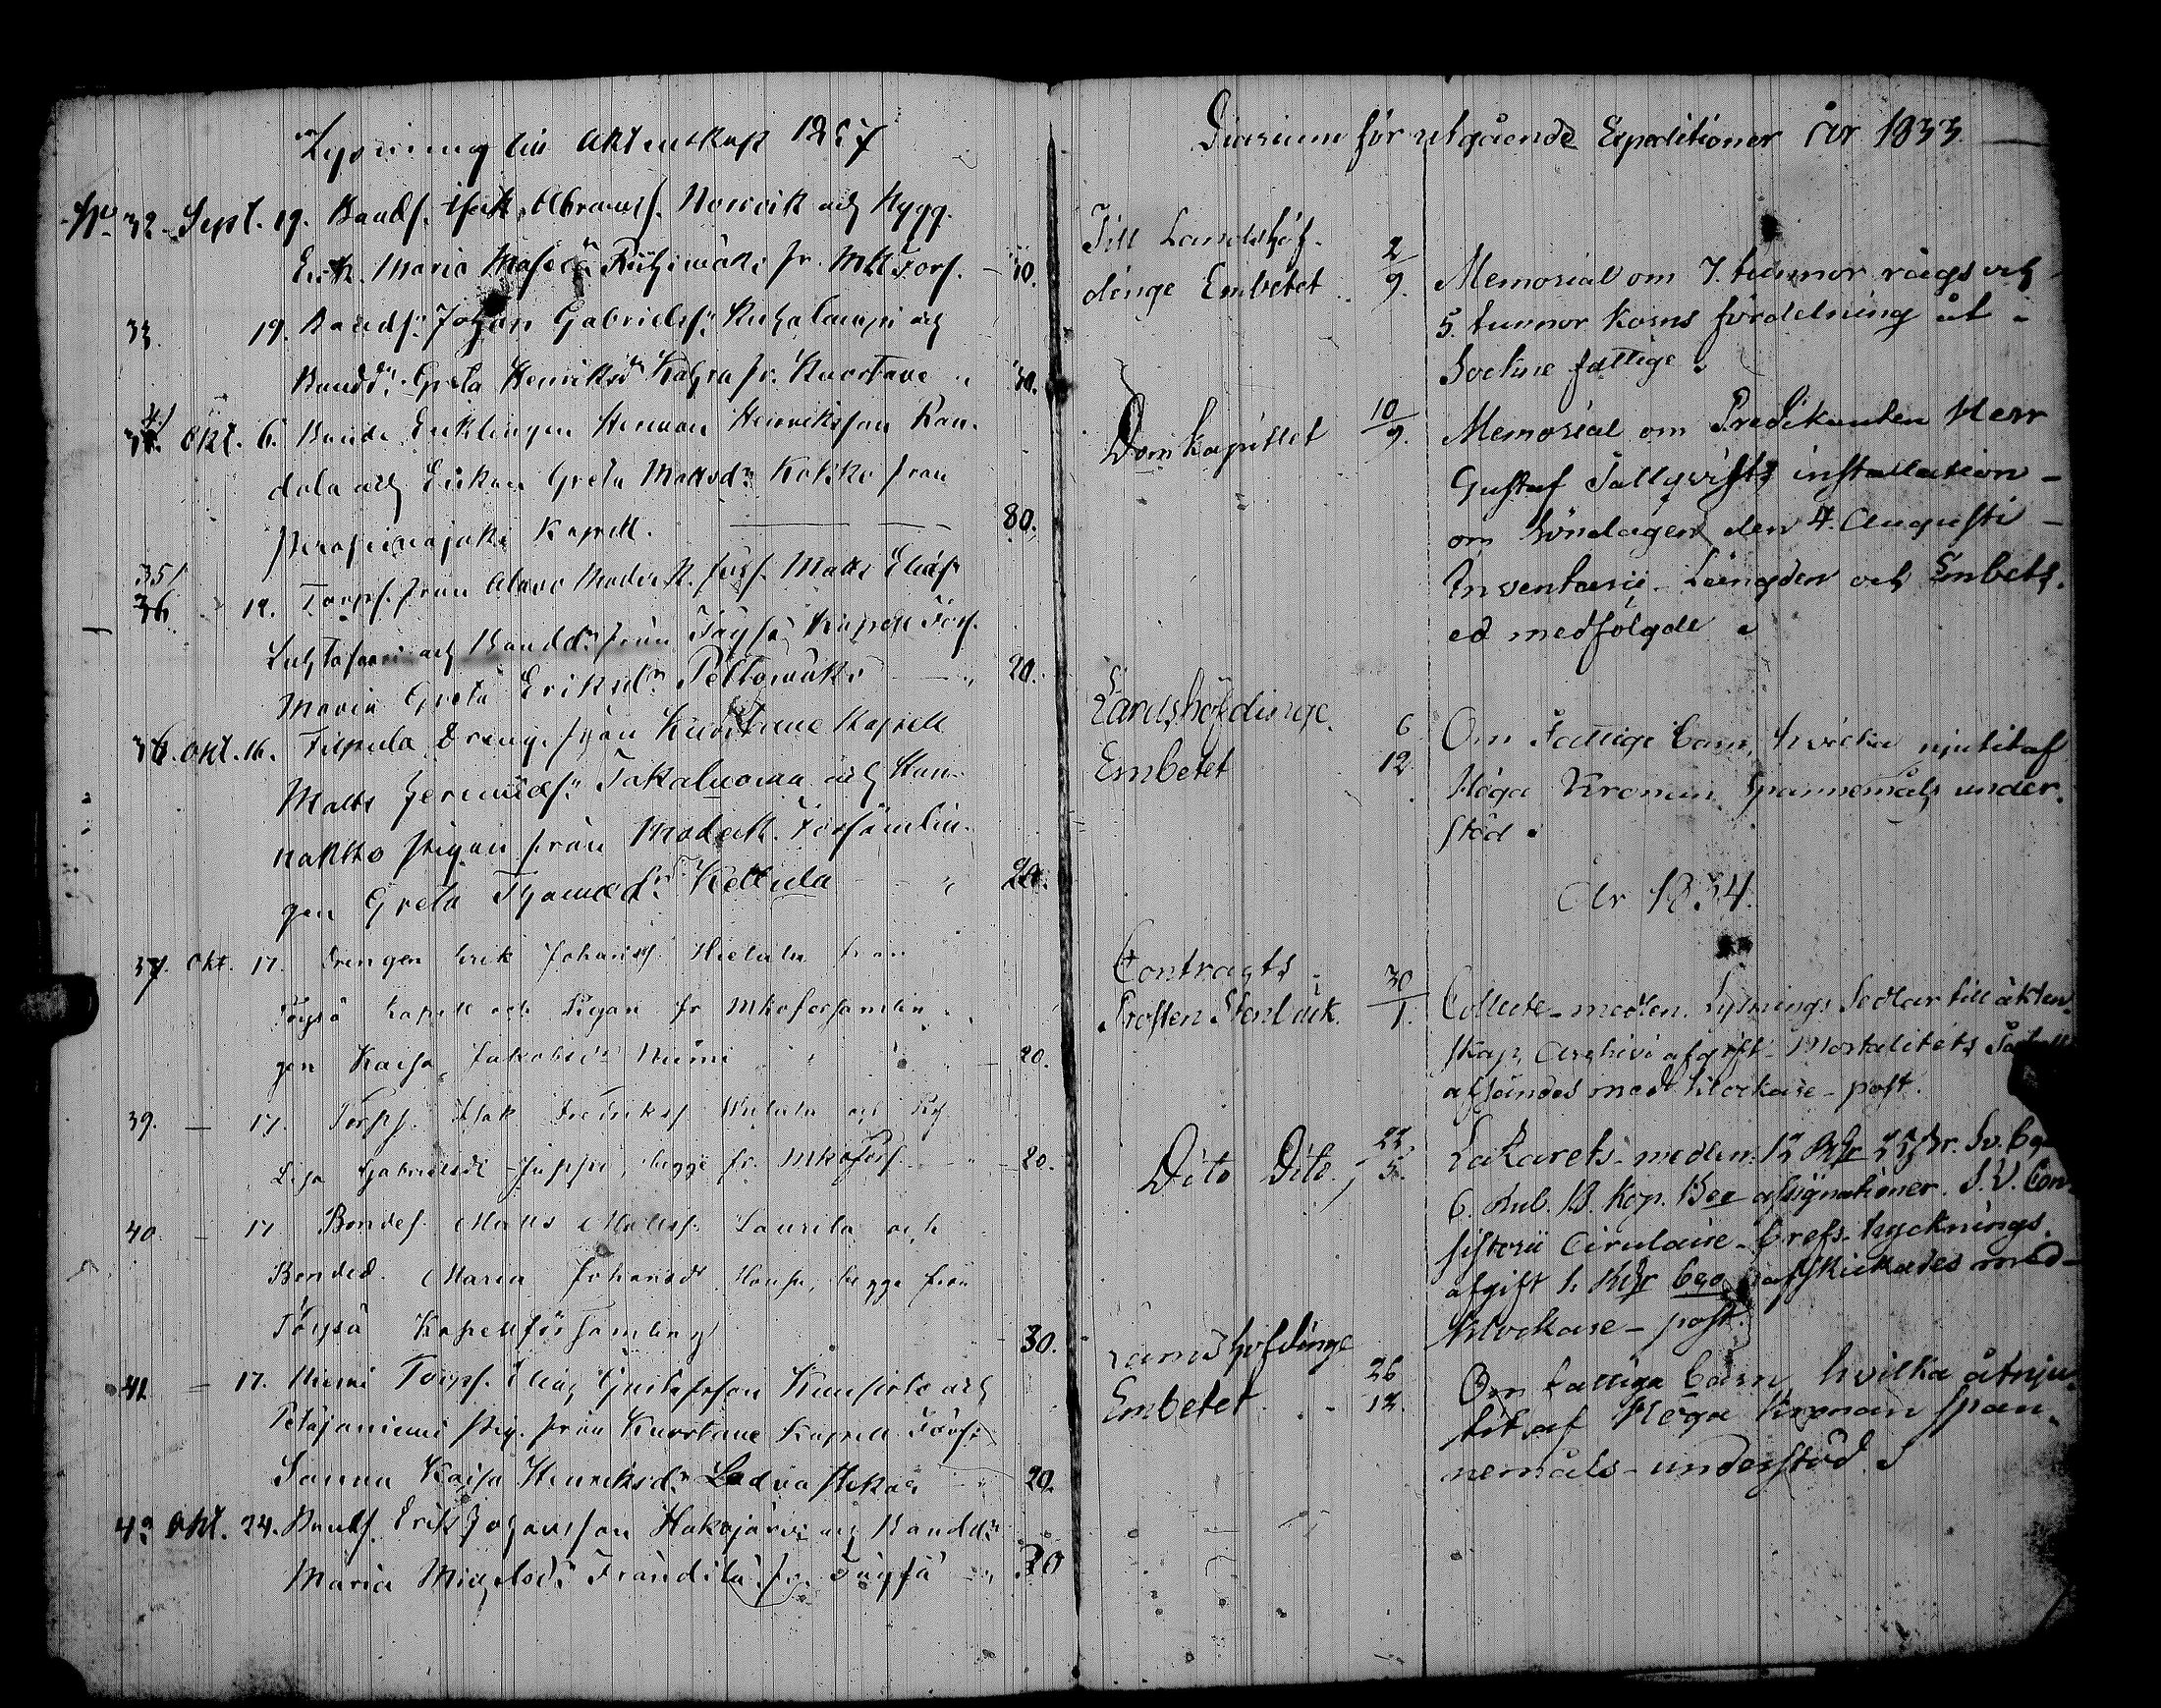 Lysning till Äktenskap 1857
No 32 Sept. 19. Bonds. Isak Abramss. Norrvik och Hygg.
Enk. Maria Maria fr. MK Förs. 30.
33. 19. Bondsn Johan Gabrielssn Ruhalampi och
Bondd. Greta Henriksdr Katra fr. Kuortane 30.
34. Okt. 6. Bonde Enklingen Herman Henriksson Ran-
dala och Enkan Greta Mattsdr Kokko från
Peräseinäjoki Kapell. 80.
35. 12. Torps. från Alavo Moderk. förs. Matts Eliass
Luhtasaari och Bondd. från Töysä Kapell Förs.
Maria Greta Eriksdr Peltomäki 20.
36. Okt. 16. Dreng. från Kuortane Kapell
Matts Jeremiass. Takaluoma och
pigan från Moderk. Församlin-
gen Greta Thomasdr Kettula 20.
37. Okt. 17. Drengen Erik Johanss. Hietala från
Töysä Kapell och Pigan fr. Mkoförsamlin-
gen Kaisa Jakobsdr Niemi 20.
39. — 17. Torps. Isak Fredrikss. och
Lisa Gabrielsdr Juppi, begge fr. MkoFörs. 20.
40. — 17 Bondes. Matts Mattss. Laurila och
Bonded. Maria Johansdr begge från
Töysä Kapellförsamling 30.
41. — 17. Torps. Elias Gustafsson och
pig. från Kuortane Kapell Förs.
Sanna Kaisa Henriksdr 20.
42 Okt. 24. Bonds. Erik Johansson Hakojärvi och Bondd.
Maria Michelsdr Frändilä fr. Töysä 30
Diarium för utgående Expeditioner År 1833.
Till Landshöf-
dinge Embetet 2/9. Memorial om 7. tunnor rågs och
5. tunnor korns fördelning åt
Sockne fattige.
Domkapitlet 10/9. Memorial om Predikanten Herr
Gustaf Tallqvists installation
om Söndagen den 4. Augusti
Inventarii-Längden och Embets-
ed medfölgde.
Landshöfdinge
Embetet 6 12. Om Fattige barn, hvilka njutit af
Höga Kronan Spannemåls under-
stöd.
År 1834.
Contragts
Prosten Stenbäck. 30/1. Collecte-medlen. Lysnings Sedlar till äkten-
skap, Archivi afgift. Mortalitets
afsändes med klockare-post.
Dito Dito. 22/5. Lazarets-medlen. 12 Rdr 25 Sv. Bco
6. Rub. 18. Kop. Bco assignationer. S. V. Con-
sistorii Cirulaire-brefs-tycknings-
afgift 1. Rdr bco afskickades med
Klockare-post.
Landshöfdinge
Embetet 26 12. Om fattiga barn hvilka åtnju-
tit af Höga Kronan Span-
nemåls-understöd.